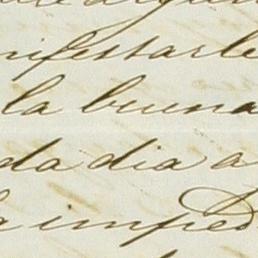 nifestarle
la buena
da dia a
a imped